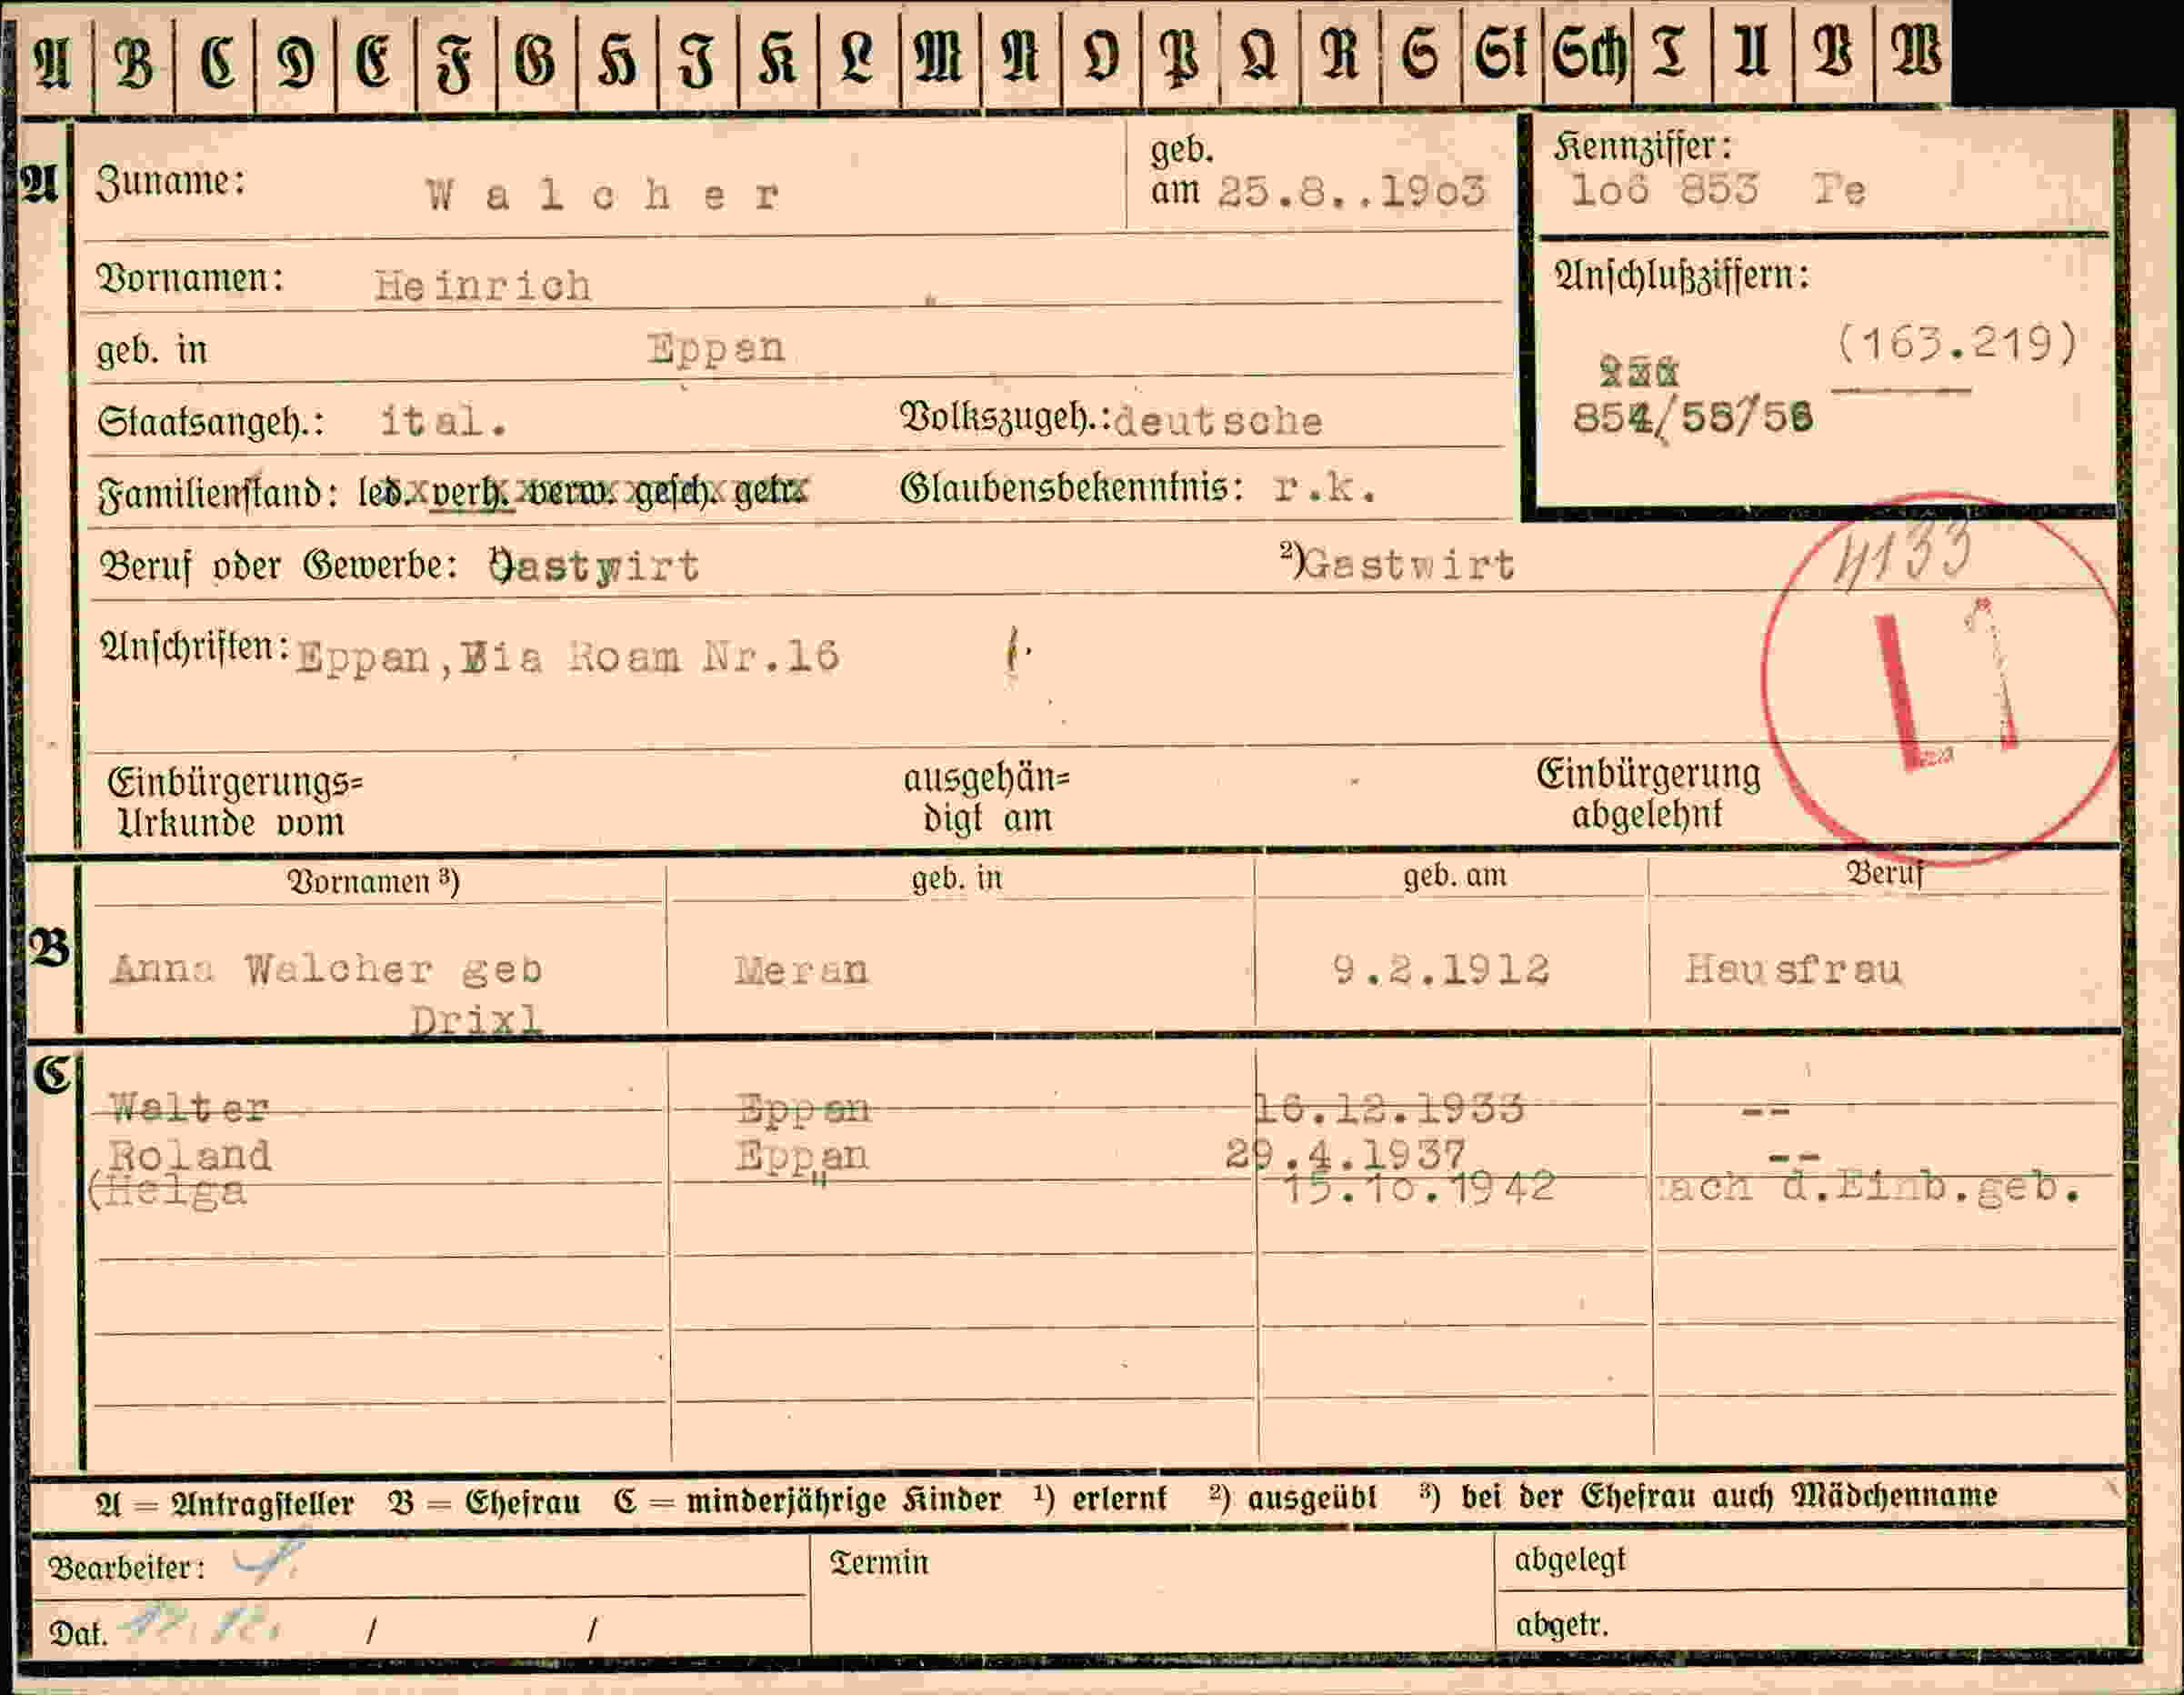 A B C D E F G H J K L M N O P Q R S St Sch T U V W
A Zuname: Walcher geb. am 25.8..1903
Kennziffer:
106 853 Pe
Vornamen: Heinrich
Anschlußziffern:
geb. in Eppan
(163.219)
854/55/56
Staatsangeh.: ital. Volkszugeh.: deutsche
Familienstand: led. verh. verw. gesch. getr. Glaubensbekenntnis: r.k.
Beruf oder Gewerbe: 1) Gastwirt 2) Gastwirt
4133
Anschriften: Eppan, Via Roam Nr.16
L
Einbürgerungs=
Urkunde vom
ausgehän=
digt am
Einbürgerung
abgelehnt
Vornamen ³) geb. in geb. am Beruf
B Anna Walcher geb Meran 9.2.1912 Hausfrau
Drixl
C
Walter Eppan 16.12.1933 --
Roland Eppan 29.4.1937 --
(Helga " 15.10.1942 ach d.Einb.geb.
A = Antragsteller B = Ehefrau C = minderjährige Kinder ¹) erlernt ²) ausgeübt ³) bei der Ehefrau auch Mädchenname
Bearbeiter: Termin abgelegt
Dat. / / abgetr.